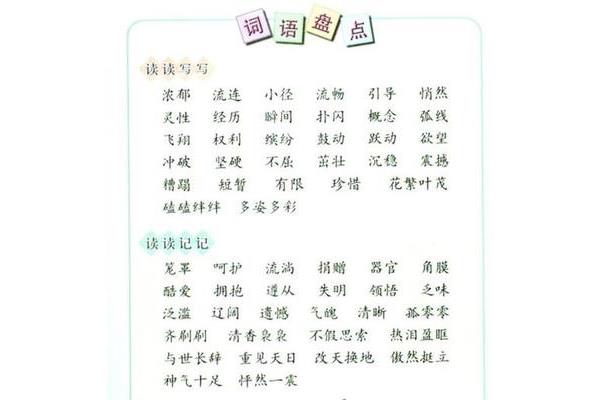 词语盘点
读读写写
浓郁 流连 小径 流畅 引导 悄然
灵性 经历 瞬间 扑闪 概念 弧线
飞翔 权利 缤纷 鼓动 跃动 欲望
冲破 坚硬 不屈 茁壮 沉稳 震撼
糟蹋 短暂 有限 珍惜 花繁叶茂
磕磕绊绊 多姿多彩
读读记记
笼罩 呵护 流淌 捐赠 器官 角膜
酷爱 拥抱 遵从 失明 领悟 乏味
泛滥 辽阔 遗憾 气魄 清晰 孤零零
齐刷刷 清香袅袅 不假思索 热泪盈眶
与世长辞 重见天日 改天换地 傲然挺立
神气十足 怦然一震